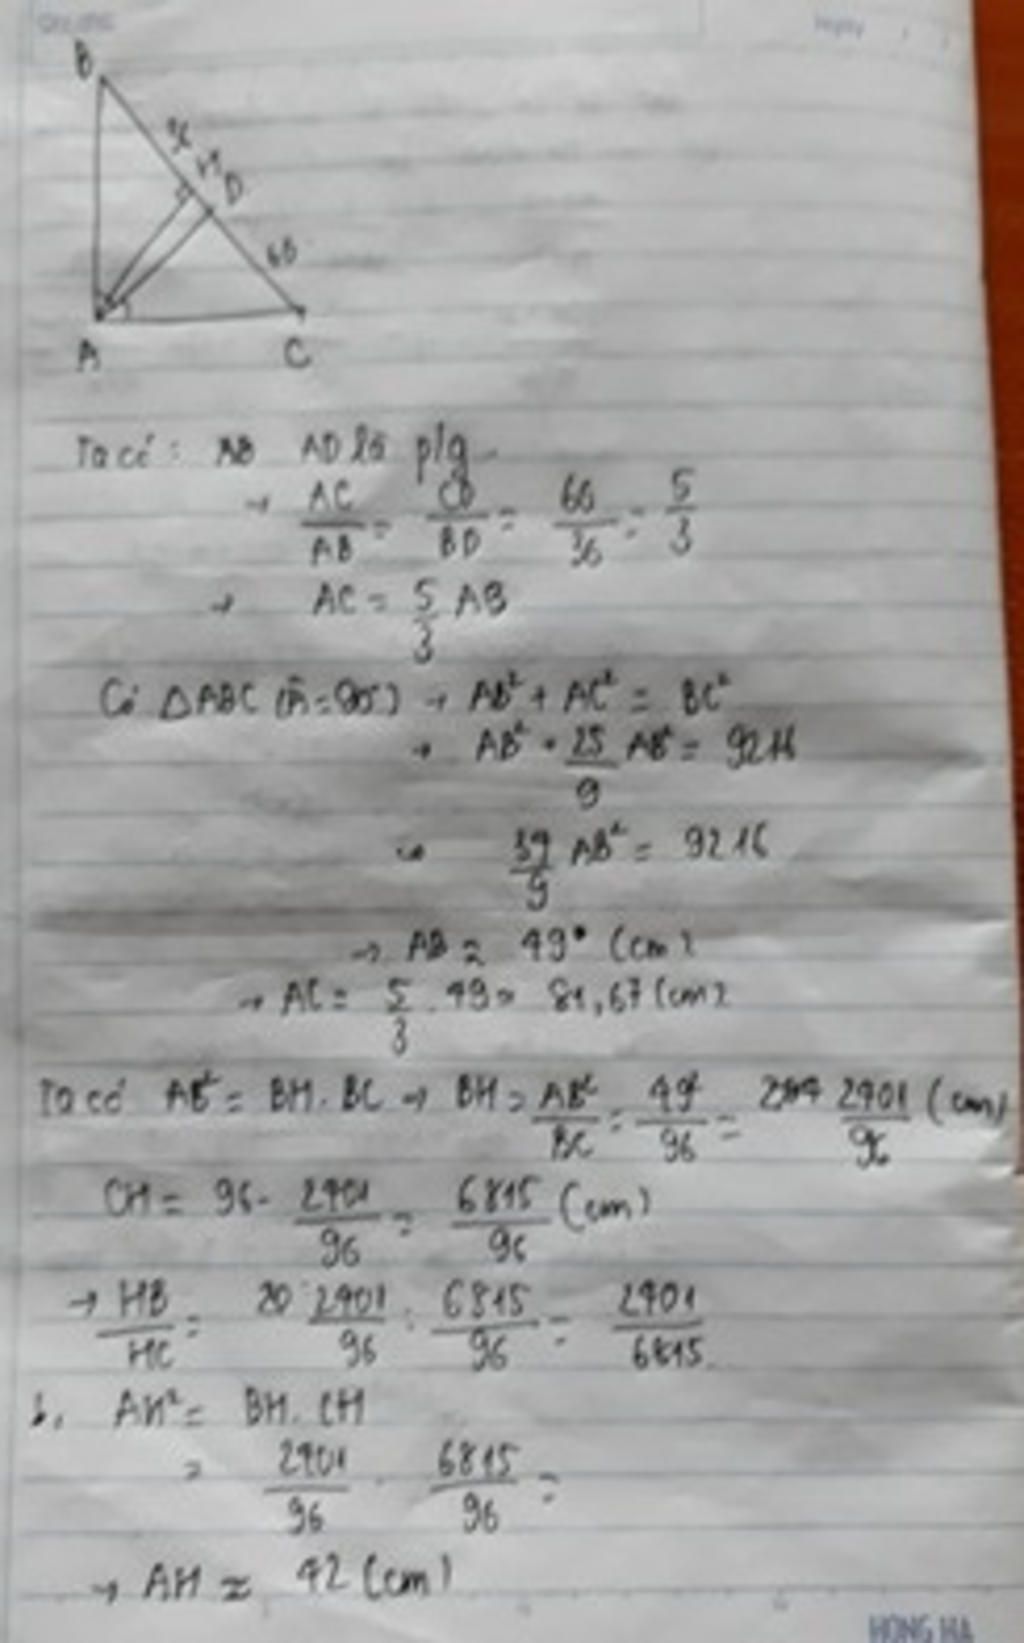 Ngày
B
36
D
60
A
C
Ta có: AD là p/g
→ AC/AB = CD/BD = 60/36 = 5/3
→ AC = 5/3 AB
Có △ABC (Â = 90°) → AB² + AC² = BC²
→ AB² + 25/9 AB² = 9216
34/9 AB² = 9216
→ AB ≈ 49 (cm)
→ AC = 5/3 . 49 ≈ 81,67 (cm)
Ta có AB² = BH . BC → BH = AB²/BC = 49²/96 = 2401/96 (cm)
CH = 96 - 2401/96 = 6815/96 (cm)
→ HB/HC = 2401/96 : 6815/96 = 2401/6815
b, AH² = BH . CH
= 2401/96 . 6815/96 =
→ AH ≈ 42 (cm)
HONG HA